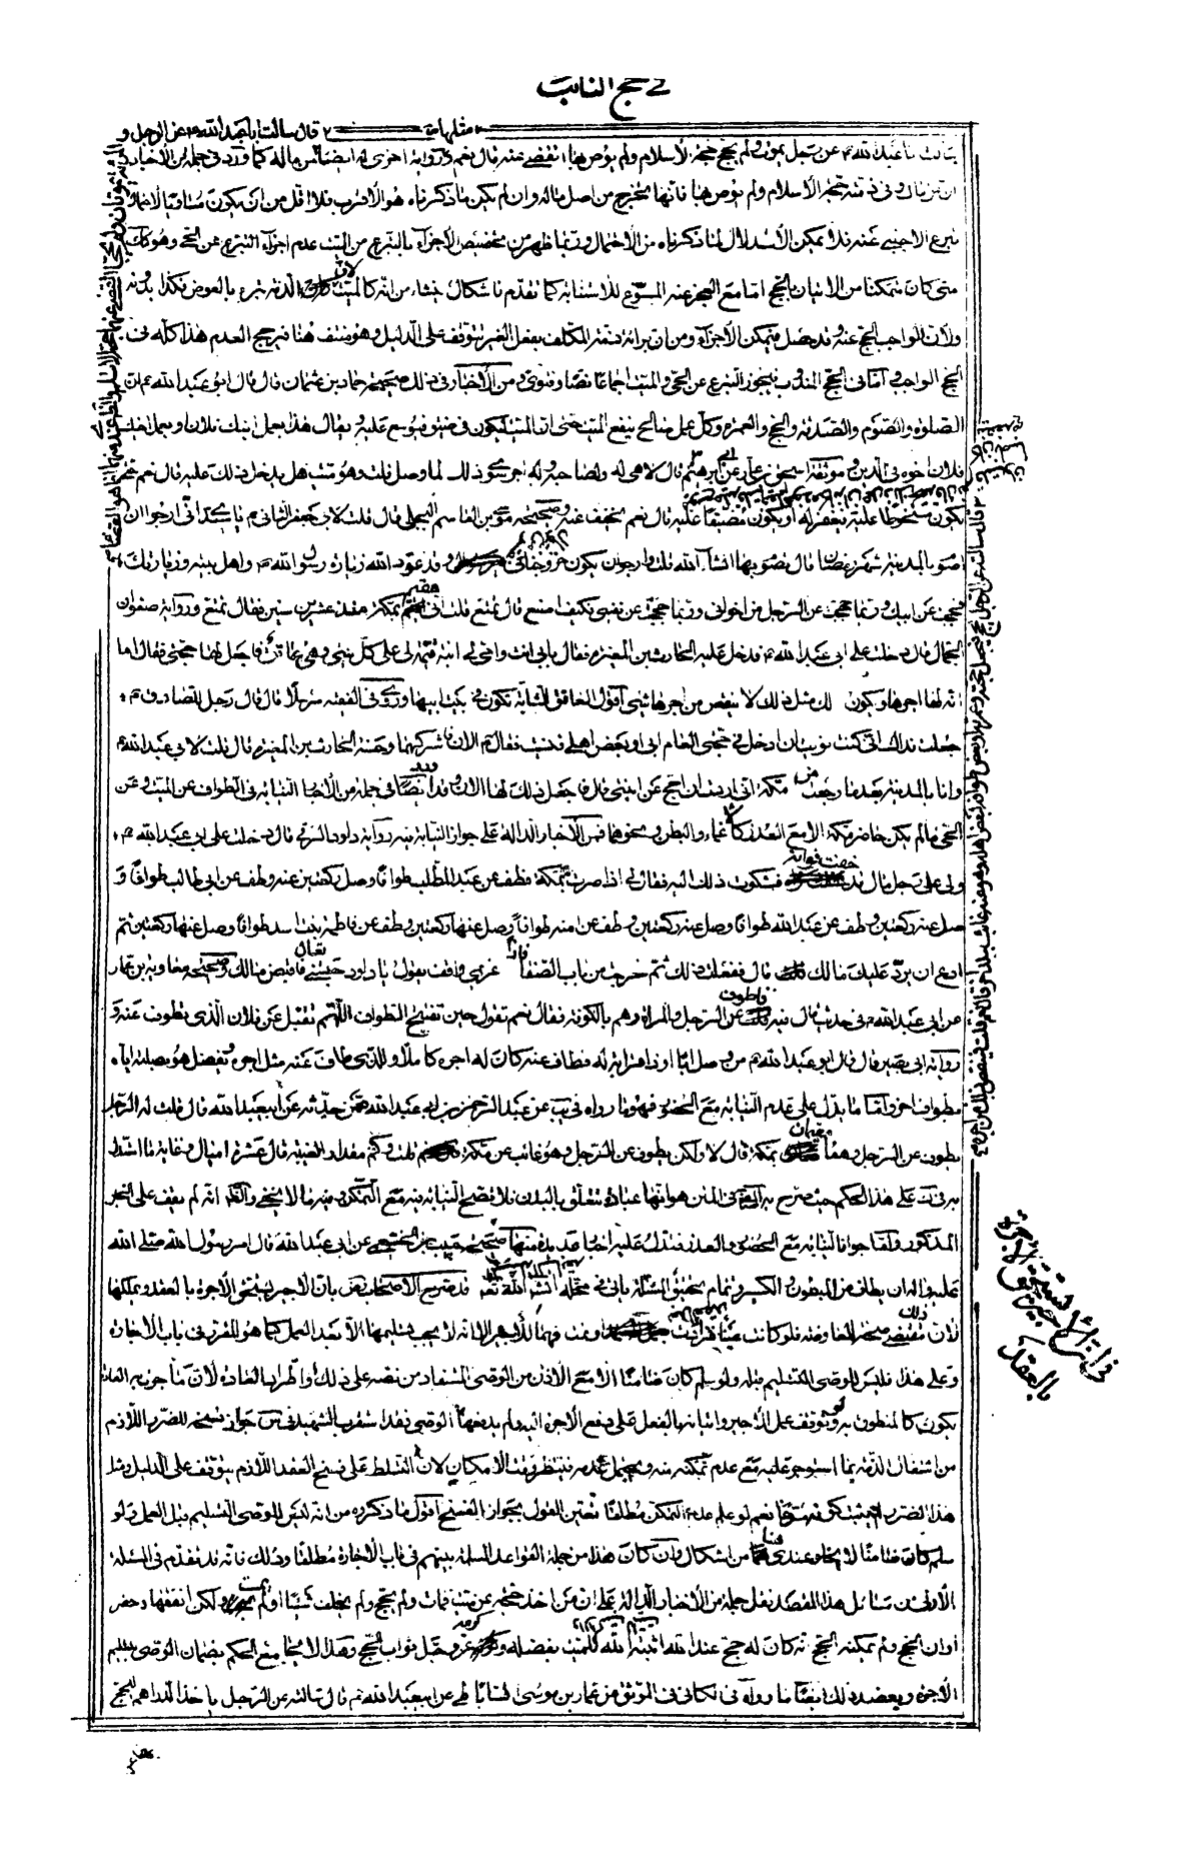 في حج النائب
قال سالت ابا عبد الله ع عن الرجل و
عبد الله ع عن رجل يموت ولم يحج حجة الاسلام ولم يوص بها اتقضى عنه قال نعم وفي رواية اخرى له ايضا من ماله كما ورد في جملة من الاخبار
ان من مات وفي ذمته حجة الاسلام ولم يوص بها فانها تخرج من اصل ماله وان لم يكن ما ذكرناه هو الاقرب فلا اقل من ان يكون مساويا لاحتمال
تبرع الاجنبي عنه فلا يمكن الاستدلال لما ذكرناه من الاحتمال وربما ظهر من تخصيص الاجزاء بالتبرع من الميت عدم اجزاء التبرع عن الحي وهو كذلك
متى كان متمكنا من الاتيان بالحج اما مع العجز عنه المسوغ للاستنابة كما تقدم فاشكال ينشاء من انه كالميت لان الذمة تبرء بالعوض فكذا بدونه
ولان الواجب الحج عنه وقد حصل فيمكن الاجزاء ومن ان براءة ذمة المكلف بفعل الغير تتوقف على الدليل وهو منتف هنا فيرجح العدم هذا كله في
الحج الواجب واما في الحج المندوب فيجوز التبرع عن الحي والميت اجماعا نصا وفتوى ومن الاخبار في ذلك صحيحة حماد بن عثمان قال قال ابو عبد الله ع ان
الصلوة والصوم والصدقة والحج والعمرة وكل عمل صالح ينفع الميت حتى ان الميت ليكون في ضيق فيوسع عليه ويقال هذا بعمل ابنك فلان وبعمل اخيك
فلان اخوه في الدين وموثقة اسحق بن عمار عن ابي ابرهيم ع قال لا هي له ولصاحبه وله اجر سوى ذلك لما وصل قلت وهو ميت هل يدخل ذلك عليه قال نعم حتى
يكون مسخوطا عليه فيغفر له او يكون مضيقا عليه قال نعم يخفف عنه وصحيحة موسى بن القاسم البجلي قال قلت لابي جعفر الثاني ع يا سيدي اني ارجو ان
اصوم بالمدينة شهر رمضان قال تصوم بها انشاء الله قلت وارجو ان يكون خروجنا في وقد عود الله زيارة رسول الله ص واهل بيته وزيارتك
فحججت عن ابيك وربما حججت عن الرجل من اخواني وربما حججت عن نفسي فكيف اصنع قال تمتع قلت اني مقيم بمكة منذ عشر سنين فقال تمتع ورواية صفوان
الجمال قال دخلت على ابي عبد الله ع فدخل عليه الحارث بن المغيرة فقال بابي انت وامي لي ابنة قيمة لي على كل شيء وهي عاتق فاجعل لها حجتي فقال اما
انه لها اجرها ويكون لك مثل ذلك لا ينقص من اجرها شيء اقول العاتق الشابة تكون في بيت ابيها وروى في الفقيه مرسلا قال قال رجل للصادق ع
جعلت فداك اني كنت نويت ان ادخل في حجتي العام ابي او بعض اهلي فنسيت فقال ع الان فاشركهما وحسنة الحارث بن المغيرة قال قلت لابي عبد الله ع
وانا بالمدينة بعد ما رجعت من مكة اني اردت ان احج عن ابنتي قال فاجعل ذلك لها الان وقد ورد ايضا في جملة من الاخبار النيابة في الطواف عن الميت وعن
الحي ما لم يكن حاضر مكة الا مع العذر كالاغماء والبطن ونحوهما فمن الاخبار الدالة على جواز النيابة فيه رواية داود الرقي قال دخلت على ابي عبد الله ع
ولي على رجل مال قد خفت فواته فشكوت ذلك اليه فقال لي اذا صرت بمكة فطف عن عبد المطلب طوافا وصل ركعتين عنه وطف عن ابي طالب طوافا و
صل عنه ركعتين وطف عن عبد الله طوافا وصل عنه ركعتين وطف عن امنة طوافا وصل عنها ركعتين وطف عن فاطمة بنت اسد طوافا وصل عنها ركعتين ثم
ادع ان يرد عليك مالك قال ففعلت ذلك ثم خرجت من باب الصفا فاذا غريمي واقف يقول يا داود حبستني تعال فاقبض مالك وصحيحة معاوية بن عمار
عن ابي عبد الله ع في حديث قال فيه فاطوف عن الرجل والمراة وهم بالكوفة فقال نعم تقول حين تفتتح الطواف اللهم تقبل عن فلان الذي تطوف عنه و
رواية ابي بصير قال قال ابو عبد الله ع من وصل ابا او ذا قرابة له فطاف عنه كان له اجره كاملا وللذي طاف عنه مثل اجره ويفضل هو بصلته اياه
بطواف اخر واما ما يدل على عدم النيابة مع الحضور فهو ما رواه في يب عن عبد الرحمن بن ابي عبد الله عمن حدثه عن ابي عبد الله قال قلت له الرجل
يطوف عن الرجل وهما مقيمان بمكة قال لا ولكن يطوف عن الرجل وهو غائب عن مكة قلت وكم مقدار الغيبة قال عشرة اميال وغاية ما استدل
به في ك على هذا الحكم حيث صرح به في المتن هو انها عبادة تتعلق بالبدن فلا تصح النيابة فيه مع التمكن وفيه ما لا يخفى والظاهر انه لم يقف على الخبر
المذكور واما جواز النيابة مع الحضور والعذر فتدل عليه اخبار عديدة منها صحيحة حبيب الخثعمي عن ابي عبد الله قال امر رسول الله صلى الله
عليه واله ان يطاف عن المبطون والكسير وتمام تحقيق المسئلة ياتي في محله انشاء الله تعالى قد صرح الاصحاب رض بان الاجير يستحق الاجرة بالعقد ويملكها
لان ذلك مقتضى صحة المعاوضة فلو كانت عينا فزادت او نمت فهما للاجير الا انه لا يجب تسليمها الا بعد العمل كما هو المقرر في باب الاجارة
وعلى هذا فليس للوصي التسليم قبله ولو سلم كان ضامنا الا مع الاذن من الموصي المستفاد من نصه على ذلك او اطراد العادة لان ما جرت به العادة
يكون كالمنطوق به ولو توقف عمل الاجير واتيانه بالفعل على دفع الاجرة اليه ولم يدفعها الوصي فقد استقرب الشهيد في س جواز فسخه للضرر اللازم
من اشتغال الذمة بما استوجر عليه مع عدم تمكنه منه ويحتمل عدمه فينتظر وقت الامكان لان التسلط على فسخ العقد اللازم يتوقف على الدليل ومثل
هذا الضرر لم يثبت كونه مسوغا نعم لو علم عدم التمكن مطلقا تعين القول بجواز الفسخ اقول ما ذكروه من انه ليس للوصي التسليم قبل العمل ولو
سلم كان ضامنا لا يخلو عندي من اشكال وان كان هذا من جملة القواعد المسلمة بينهم في باب الاجارة مطلقا وذلك فانه قد تقدم في المسئلة
الاولى من مسائل هذا المقصد نقل جملة من الاخبار الدالة على ان من اخذ حجة عن ميت فمات ولم يحج ولم يخلف شيئا او لم يمت ولكن انفقها وحضر
اوان الحج ولم يمكنه الحج انه كان له حج عند الله اثبته الله للميت بفضله وكرمه عز وجل ثواب الحج وهذا لا يجامع الحكم بضمان الوصي بتسليم
الاجرة ويعضد ذلك ايضا ما رواه في الكافي في الموثق عن عمار بن موسى الساباطي عن ابي عبد الله ع قال سالته عن الرجل ياخذ الدراهم ليحج
في ان الاجير يستحق الاجرة
بالعقد